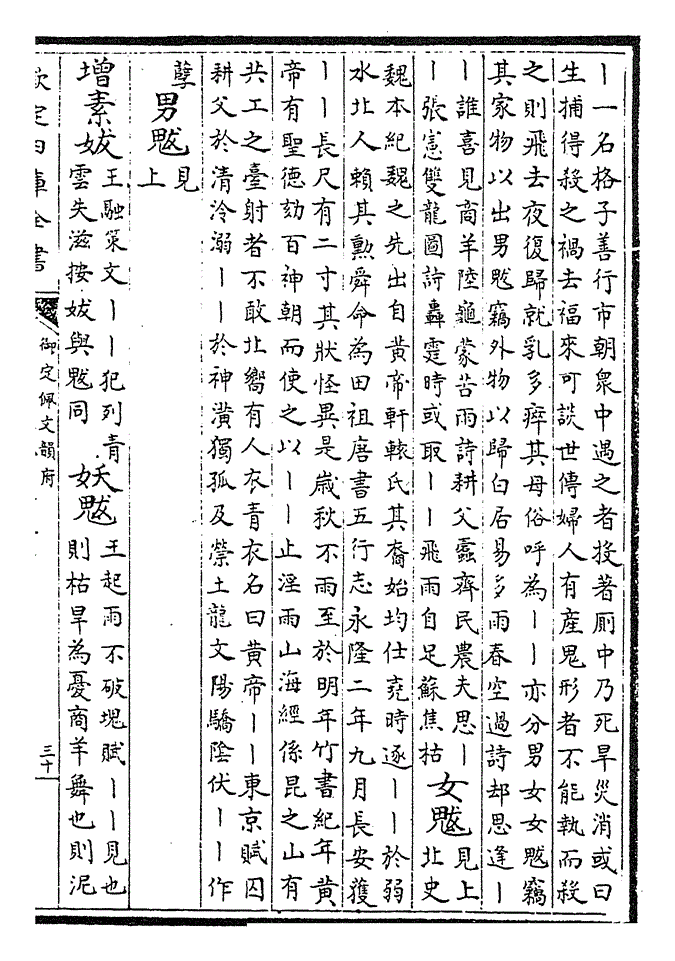 ｜一名格子善行市朝衆中遇之者投著厠中乃死旱災消或曰
生捕得殺之禍去福來可談世傳婦人有產鬼形者不能執而殺
之則飛去夜復歸就乳多瘁其母俗呼為｜｜亦分男女女魃竊
其家物以出男魃竊外物以歸白居易多雨春空過詩却思逢｜
｜誰喜見商羊陸龜蒙苦雨詩耕父蠹齊民農夫思｜
｜張憲雙龍圖詩轟霆時或取｜｜飛雨自足蘇焦枯
女魃
見上
北史
魏本紀魏之先出自黄帝軒轅氏其裔始均仕堯時逐｜｜於弱
水北人賴其勲舜命為田祖唐書五行志永隆二年九月長安獲
｜｜長尺有二寸其狀怪異是嵗秋不雨至於明年竹書紀年黄
帝有聖德劾百神朝而使之以｜｜止淫雨山海經係昆之山有
共工之臺射者不敢北嚮有人衣青衣名曰黄帝｜｜東京賦囚
耕父於清泠溺｜｜於神潢獨孤及禜土龍文陽驕陰伏｜｜作
孽
男魃
見
上
增素妭
王融策文｜｜犯列青
雲失滋按妭與魃同
妖魃
王起雨不破塊賦｜｜見也
則枯旱為憂商羊舞也則泥
欽定四庫全書
御定佩文韻府
三十